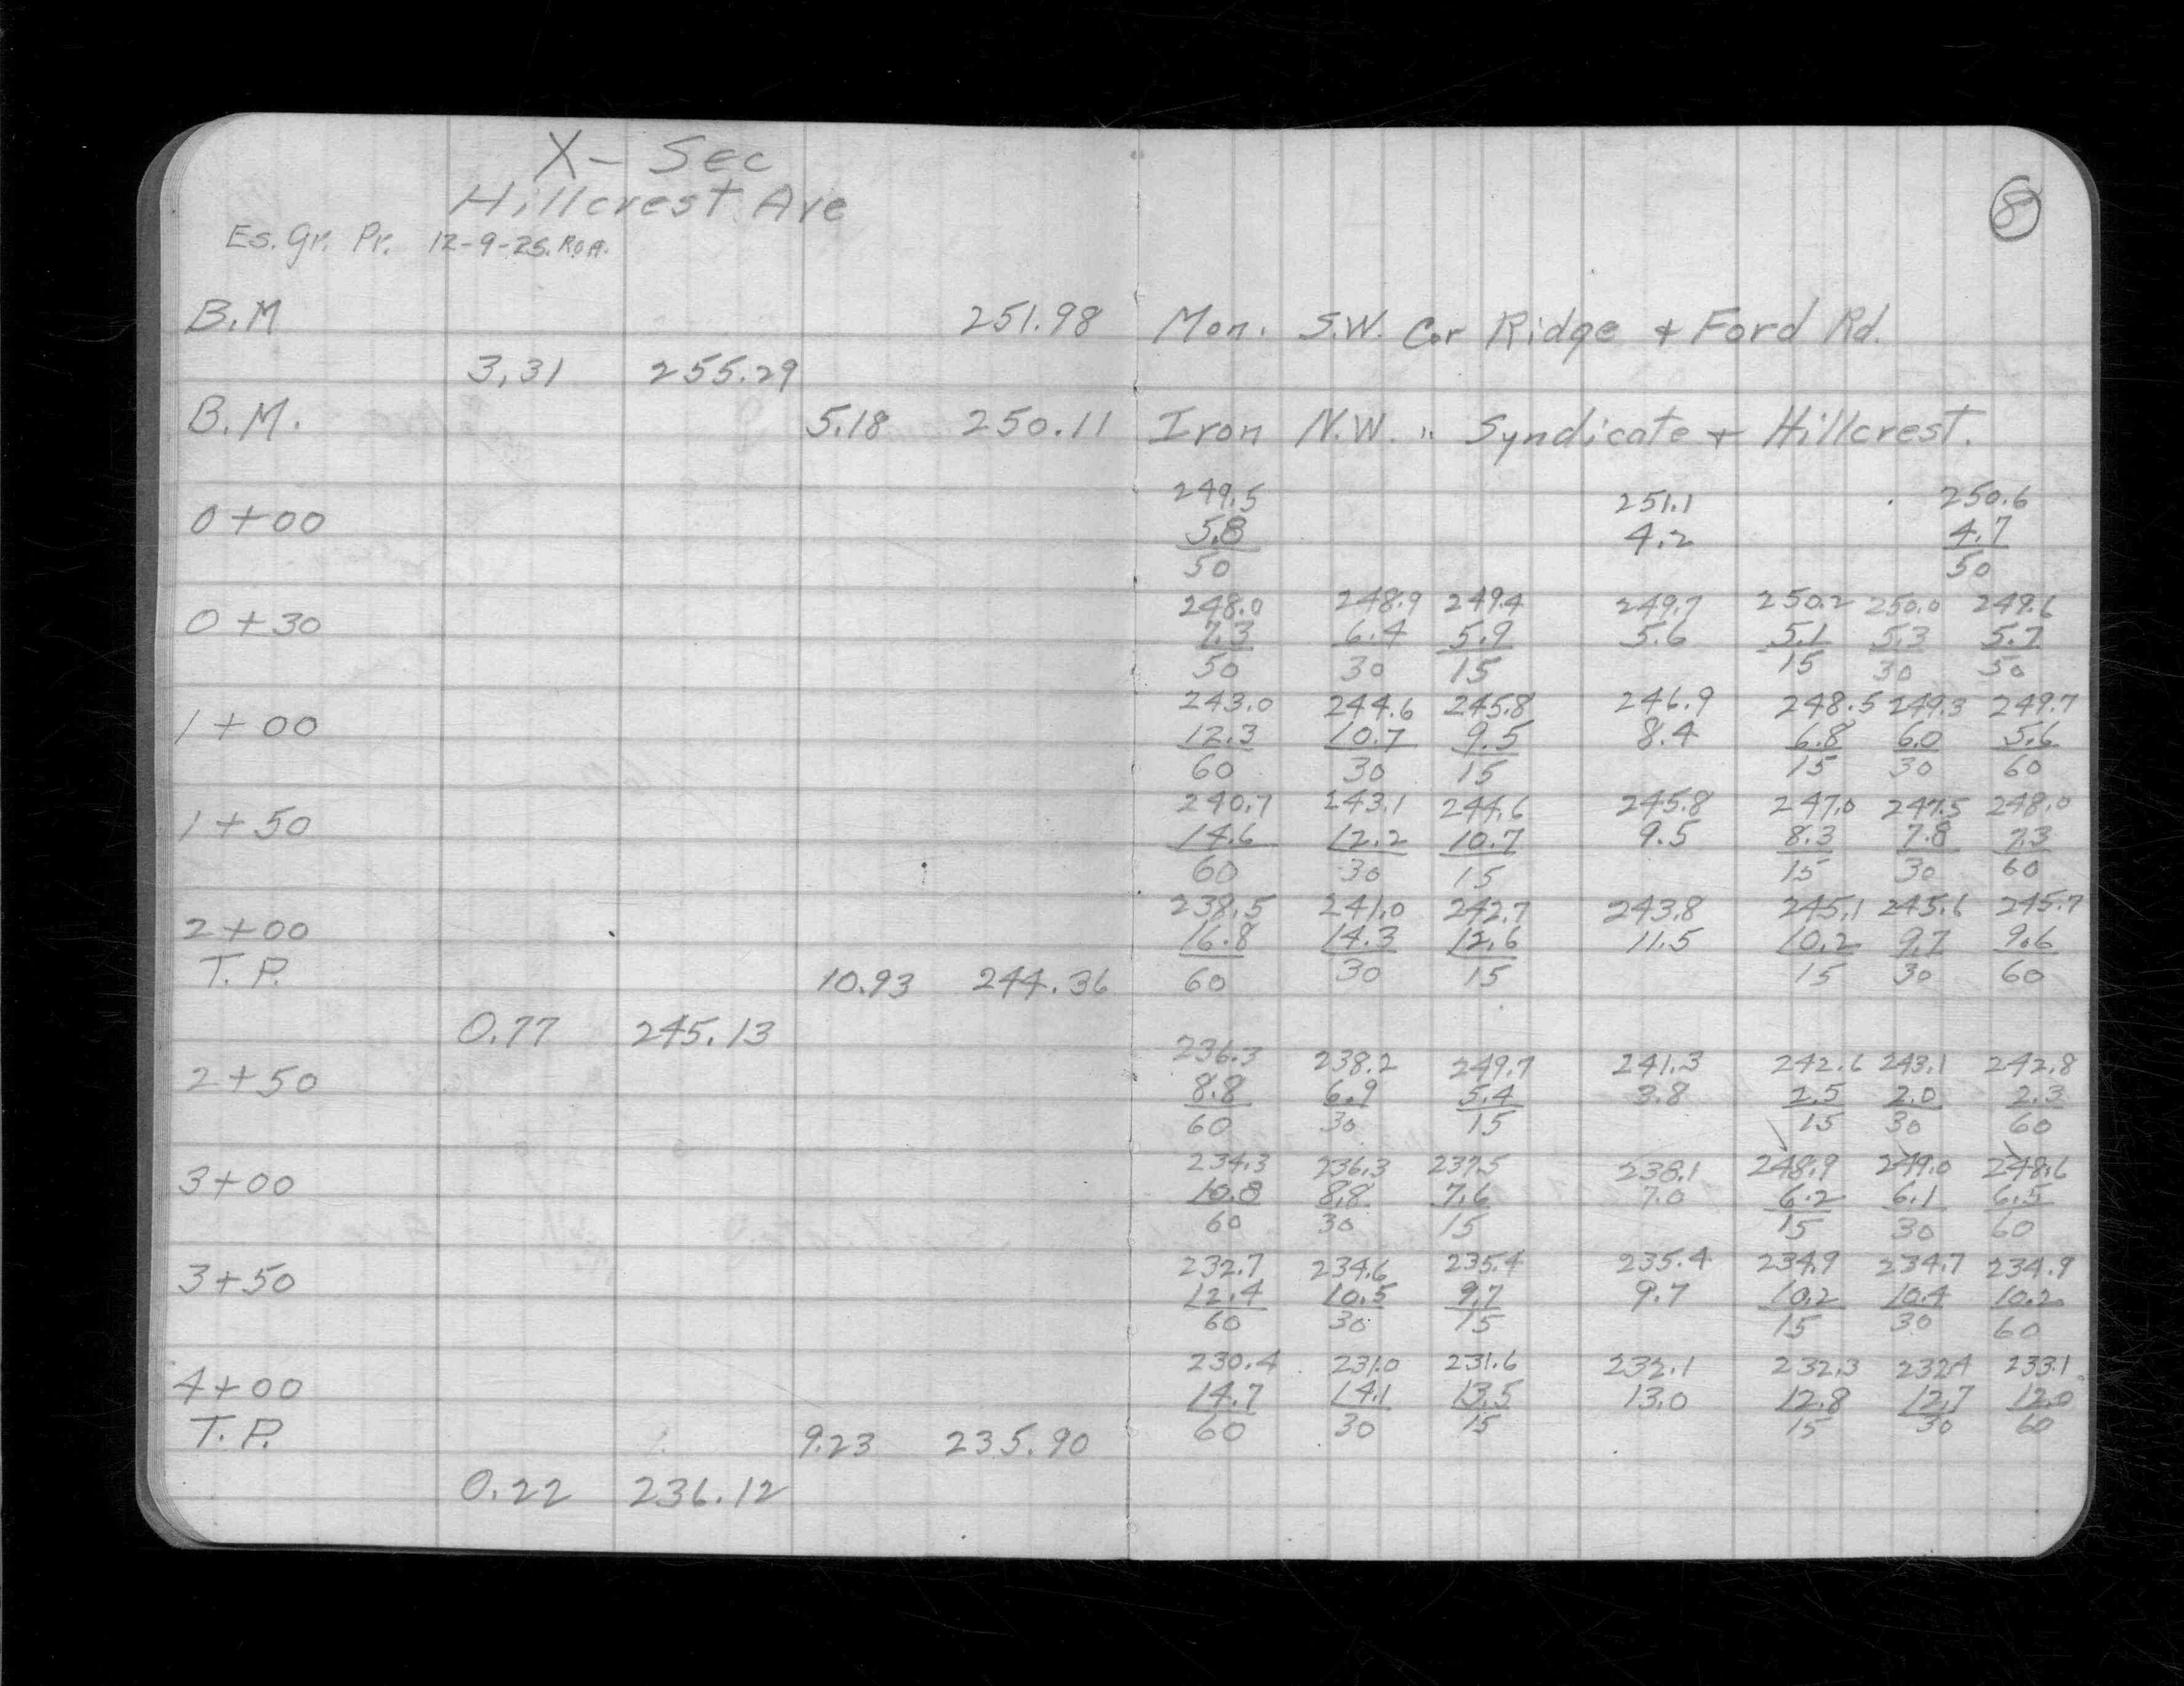 X- Sec
Hillcrest Ave
8
Es. Gr. Pr. 12-9-25. R.O.A.
B.M 251.98 Mon. S.W. Cor Ridge & Ford Rd.
3.31 255.29
B.M. 5.18 250.11 Iron N.W. " Syndicate & Hillcrest.
249.5 251.1 250.6
0+00 5.8 4.2 4.7
50 50
248.0 248.9 249.4 249.7 250.2 250.0 249.6
0+30 7.3 6.4 5.9 5.6 5.1 5.3 5.7
50 30 15 15 30 50
243.0 244.6 245.8 246.9 248.5 249.3 249.7
1+00 12.3 10.7 9.5 8.4 6.8 6.0 5.6
60 30 15 15 30 60
240.7 243.1 244.6 245.8 247.0 247.5 248.0
1+50 14.6 12.2 10.7 9.5 8.3 7.8 7.3
60 30 15 15 30 60
238.5 241.0 242.7 243.8 245.1 245.6 245.7
2+00 16.8 14.3 12.6 11.5 10.2 9.7 9.6
T.P. 10.93 244.36 60 30 15 15 30 60
0.77 245.13
236.3 238.2 249.7 241.3 242.6 243.1 242.8
2+50 8.8 6.9 5.4 3.8 2.5 2.0 2.3
60 30 15 15 30 60
234.3 236.3 237.5 238.1 248.9 249.0 248.6
3+00 10.8 8.8 7.6 7.0 6.2 6.1 6.5
60 30 15 15 30 60
232.7 234.6 235.4 235.4 234.9 234.7 234.9
3+50 12.4 10.5 9.7 9.7 10.2 10.4 10.2
60 30 15 15 30 60
230.4 231.0 231.6 232.1 232.3 232.4 233.1
4+00 14.7 14.1 13.5 13.0 12.8 12.7 12.0
T.P. 9.23 235.90 60 30 15 15 30 60
0.22 236.12